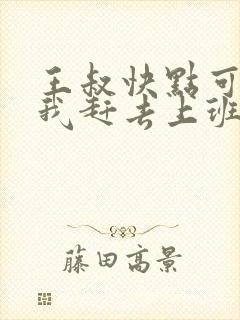 王叔快點可
我赶去上班
藤田高景